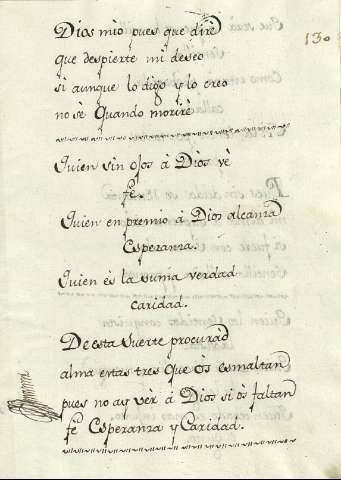 130
Dios mio pues que dirè
que despierte mi deseo
si aunque lo digo y lo creo
no sè Quando morirè
Quien sin ojos à Dios vè
fe.
Quien en premio à Dios alcanza
Esperanza.
Quien ès la suma verdad
caridad.
De esta suerte procurad
alma estas tres que òs esmaltan
pues no as vèr à Dios si òs faltan
fe Esperanza y Caridad.